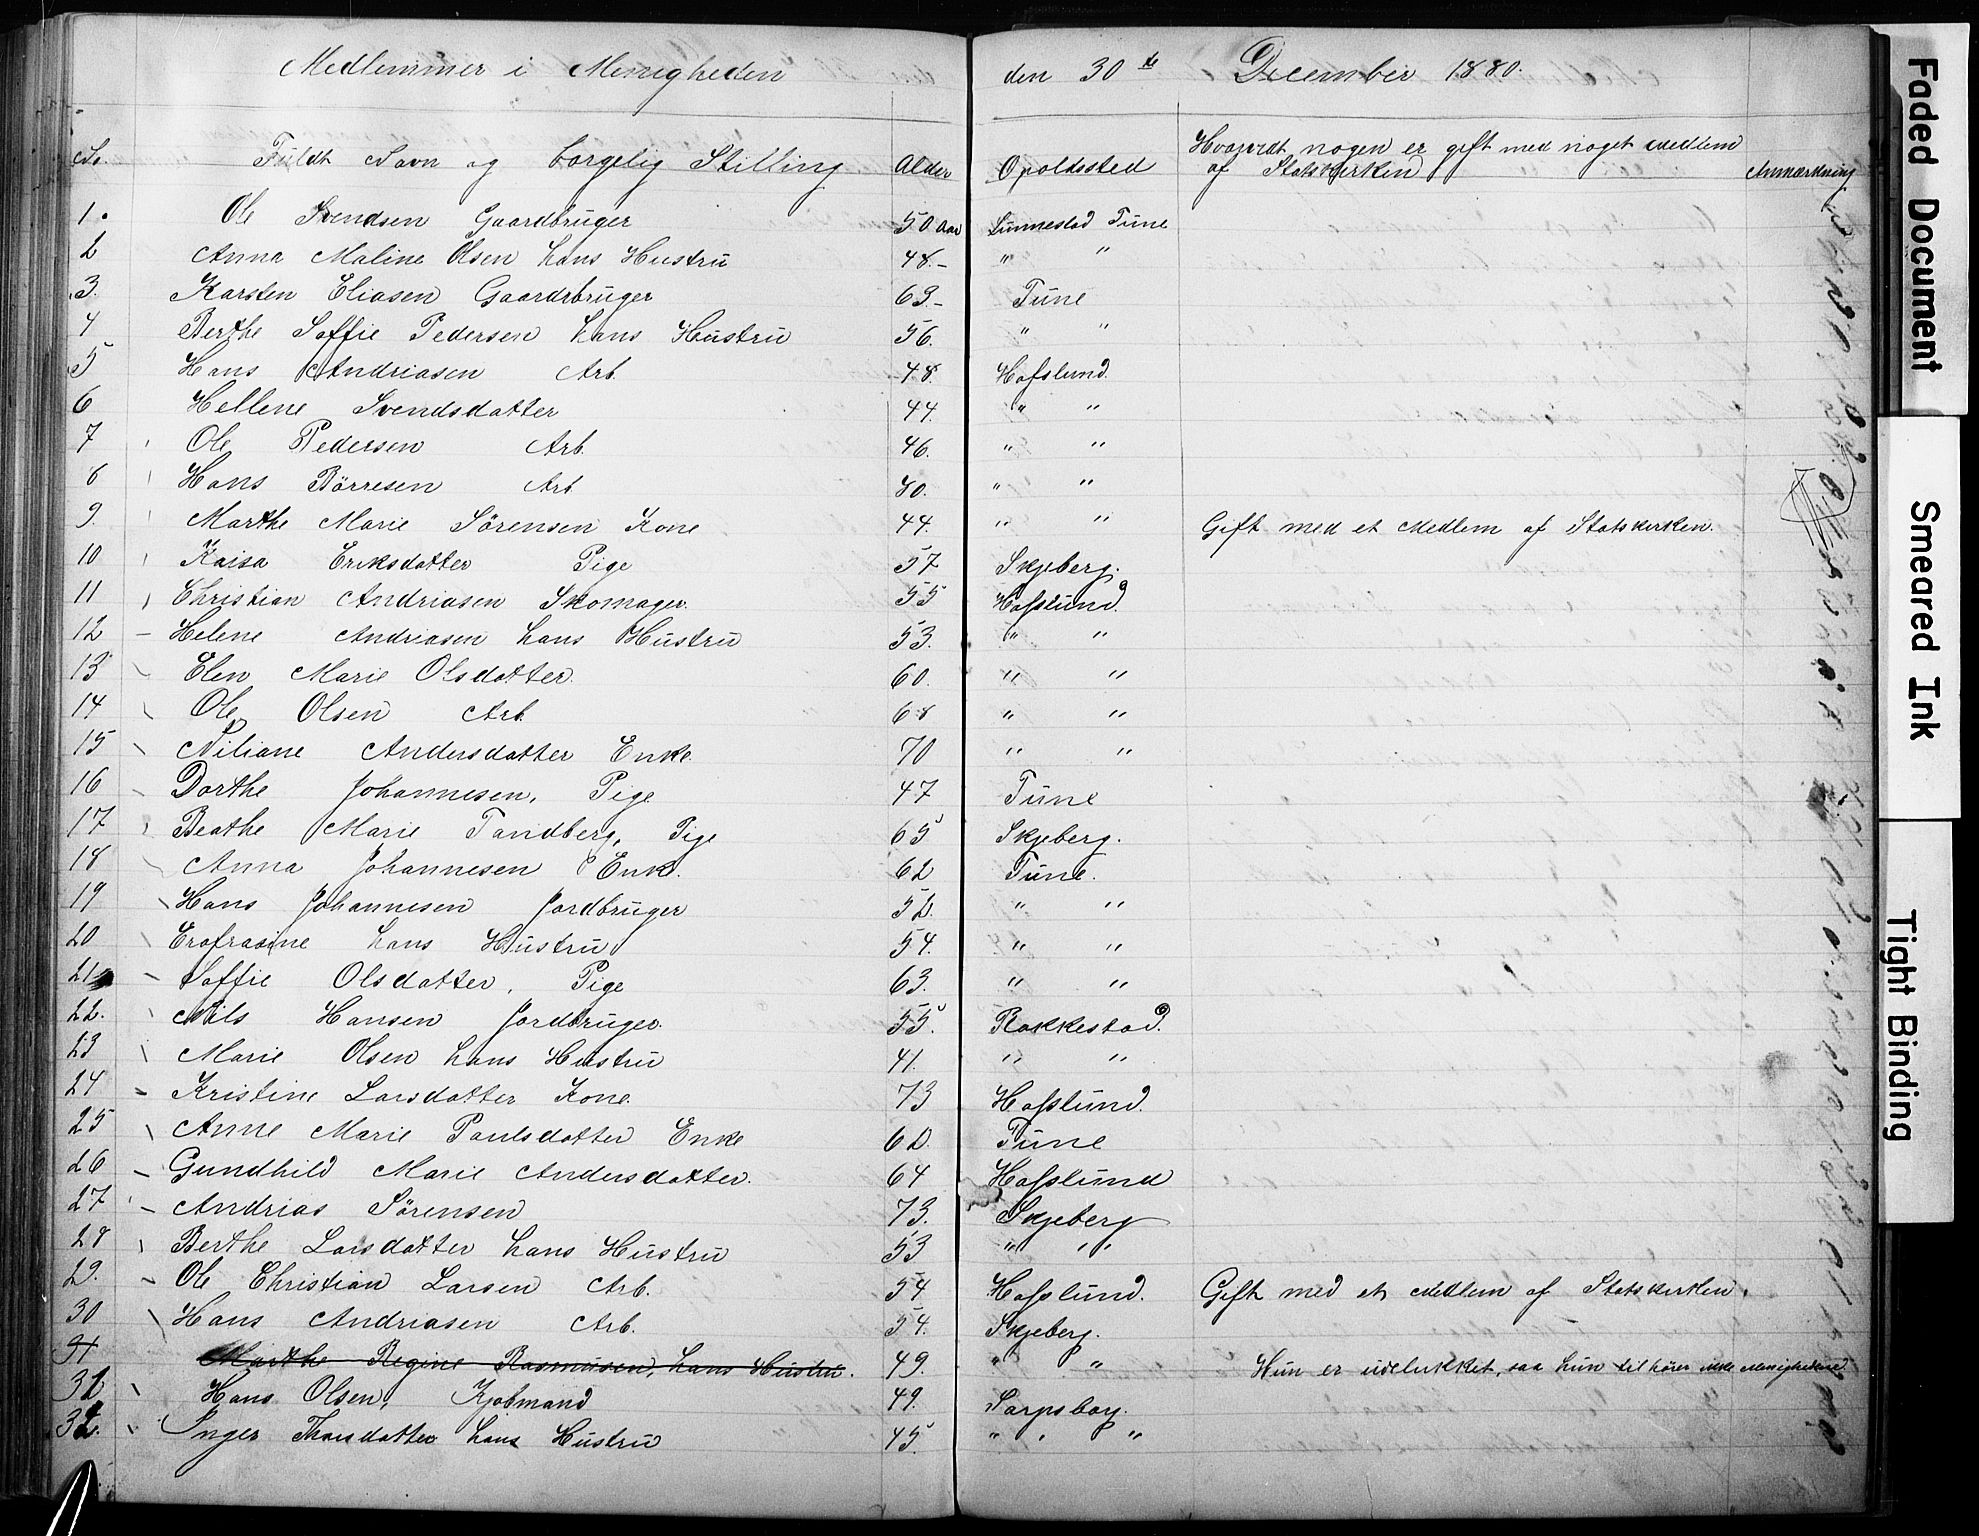 Medlemmer i Menigheden den 30te December 1880.
No. Fuldt Navn og borgelig Stilling Alder Opoldssted Hvorvidt nogen er gift med noget Medlem af Statskirken Anmærkning
1. Ole Svendsen Gaardbruger 50 Aar Tune
2 Anna Maline Olsen hans Hustru 48.- " "
3. Karsten Eliasen Gaardbruger 63.- Tune
4 Berthe Soffie Pedersen hans Hustru 56. " "
5 Hans Andriasen Arb. 48. Hafslund.
6 Hellene Svendsdatter 44. " "
7 Ole Pedersen Arb. 46. " "
8 Hans Börresen Arb. 40. " "
9. Marthe Marie Sörensen Kone 44. " " Gift med et Medlem af Statskirken.
10 Kaisa Eriksdatter Pige 57 Skjeberg.
11 Christian Andriasen Skomager. 55 Hafslund.
12 Helene Andriasen hans Hustru 53. " "
13 Elen Marie Olsdatter. 60. " "
14 Ole Olsen Arb. 68 " "
15 Niliane Andersdatter Enke. 70 " "
16 Dorthe Johannesen, Pige 47 Tune
17 Beathe Marie Tandberg, Pige 65 Skjeberg.
18 Anna Johannesen Enke. 62 Tune.
19 Hans Johannesen Jordbruger 52. " "
20 hans Hustru 54. " "
21 Soffie Olsdatter, Pige 63. " "
22. Nils Hansen Jordbruger. 55. Rakkestad.
23 Marie Olsen hans Hustru 41. " "
24 Kristine Larsdatter Kone. 73 Hafslund.
25 Anne Marie Paulsdatter Enke 62. Tune
26 Gundhild Marie Andersdatter. 64 Hafslund
27 Andrias Sörensen 73. Skjeberg
28 Berthe Larsdatter hans Hustru 53 " "
29. Ole Christian Larsen Arb. 54 Hafslund. Gift med et Medlem af Statskirken.
30 Hans Andriasen Arb. 54. Skjeberg.
31 Marthe Regine Rasmusen, hans Hustru. 49. " " Hun er udelukket, saa hun tilhörer ikke Menigheden.
Hans Olsen, Kjøbmand 49. Sarpsborg.
Inger Thorsdatter hans Hustru 45. " "
Faded Document
Smeared Ink
Tight Binding